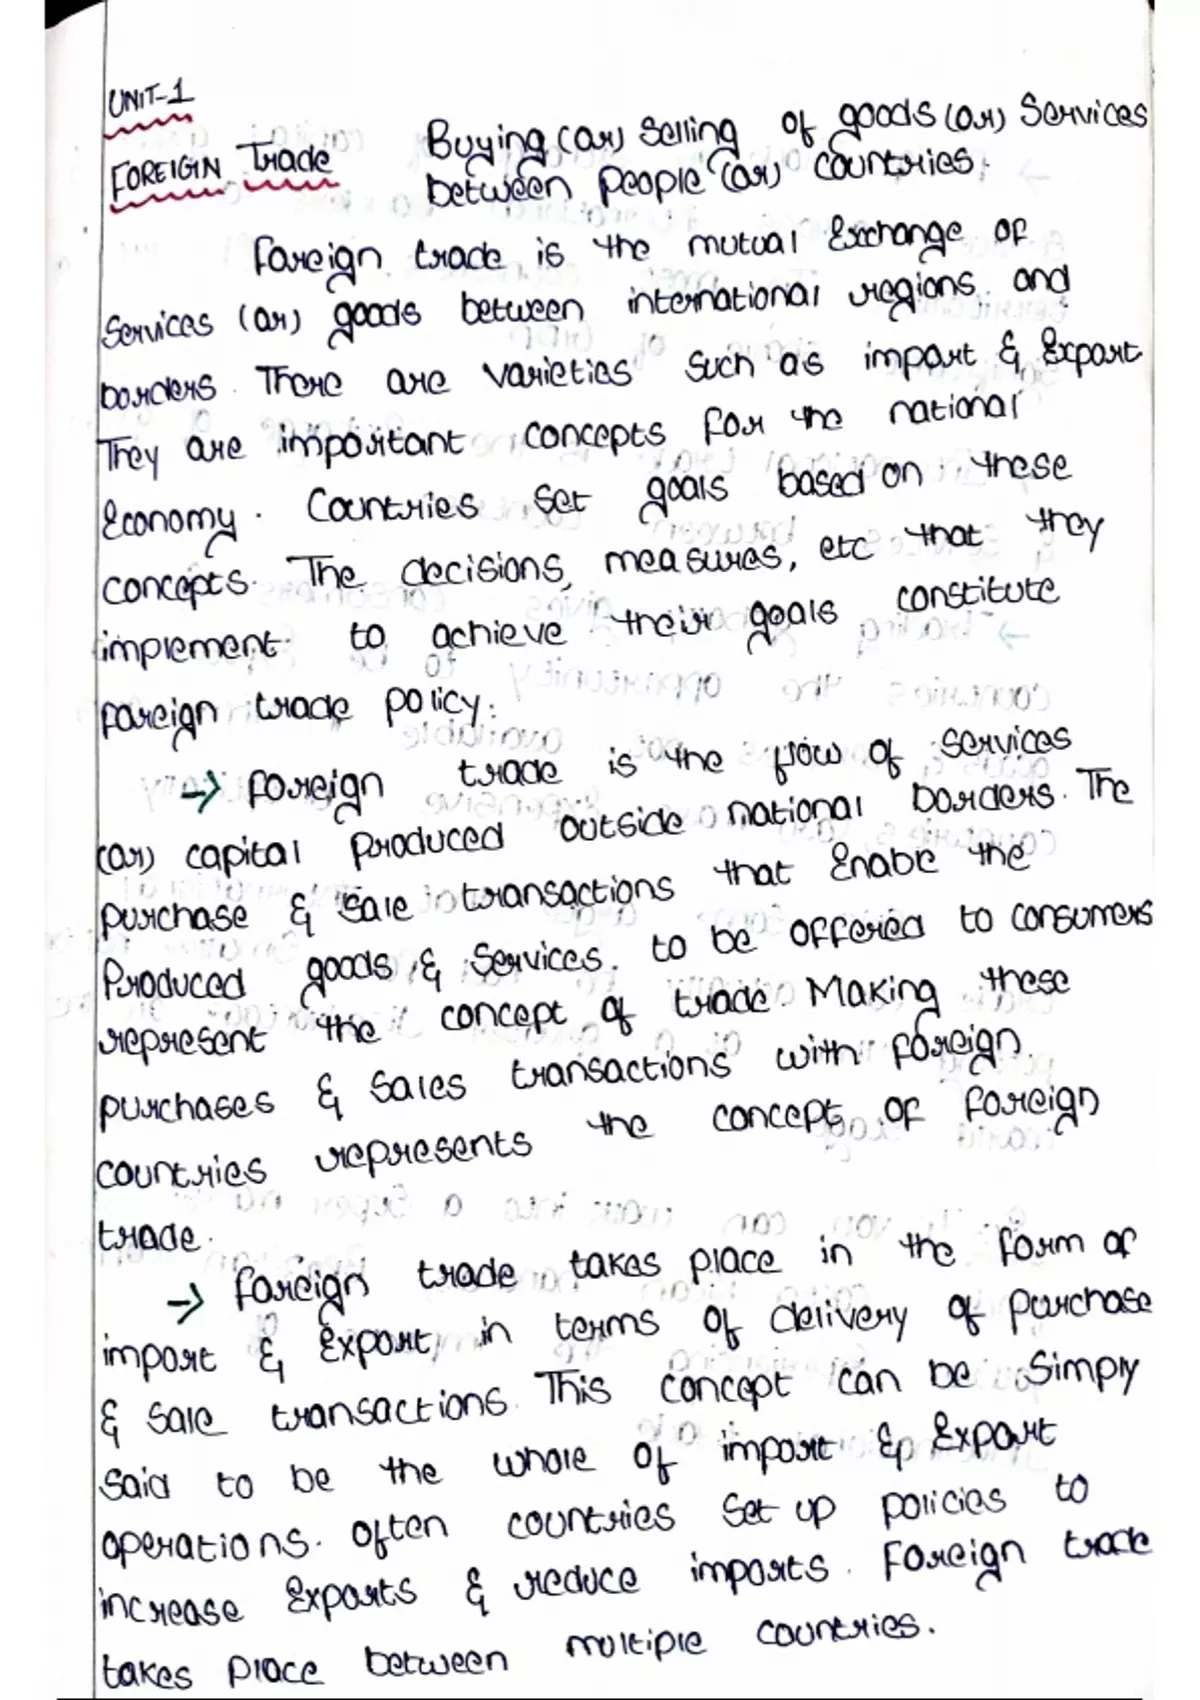 UNIT-1
FOREIGIN Trade Buying (or) Selling of goods (or) Services
between people (or) countries.
Foreign trade is the mutual Exchange of
Services (or) goods between international regions and
borders. There are varieties such as import & Export
They are important concepts for the national
Economy. Countries set goals based on these
concepts. The decisions, measures, etc that they
implement to achieve their goals constitute
foreign trade policy.
→ foreign trade is the flow of services
(or) capital produced outside national borders. The
purchase & sale transactions that Enable the
Produced goods & Services. to be offered to consumers
represent the concept of trade. Making these
purchases & Sales transactions with foreign
countries represents the concept of foreign
trade.
→ foreign trade takes place in the form of
import & Export in terms of delivery of purchase
& sale transactions. This concept can be Simply
Said to be the whole of import & Export
operations. often countries Set up policies to
increase Exports & reduce imports. Foreign trade
takes place between multiple countries.